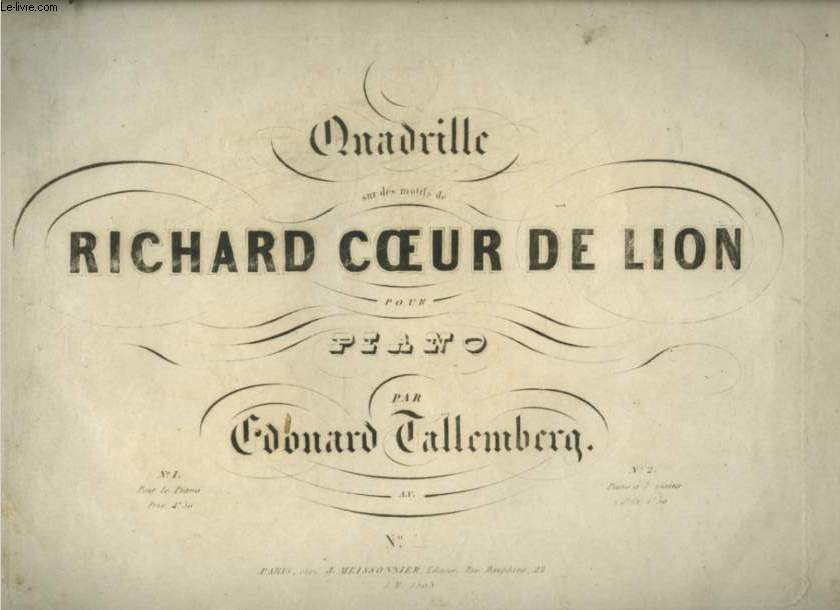 Le-livre.com
Quadrille
sur des motifs de
RICHARD CŒUR DE LION
POUR
PIANO
PAR
Edouard Tallemberg.
AV.
Nº 1.
Pour le Piano
Prix 4f 50
Nº 2.
Piano à
Nº
PARIS, chez J. MEISSONNIER, Editeur, Rue Dauphine, 22
J. M.